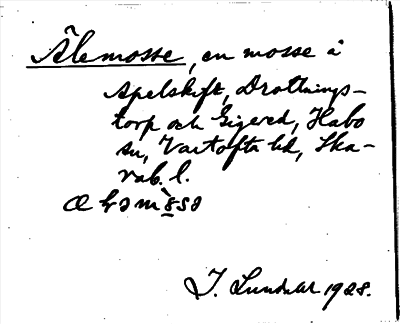 Älemosse, en mosse å
Apelskift, Drottnings-
torp och Sigered, Habo
sn, Vartofta hd, Ska-
rab. l.
J. Lundahl 1928.